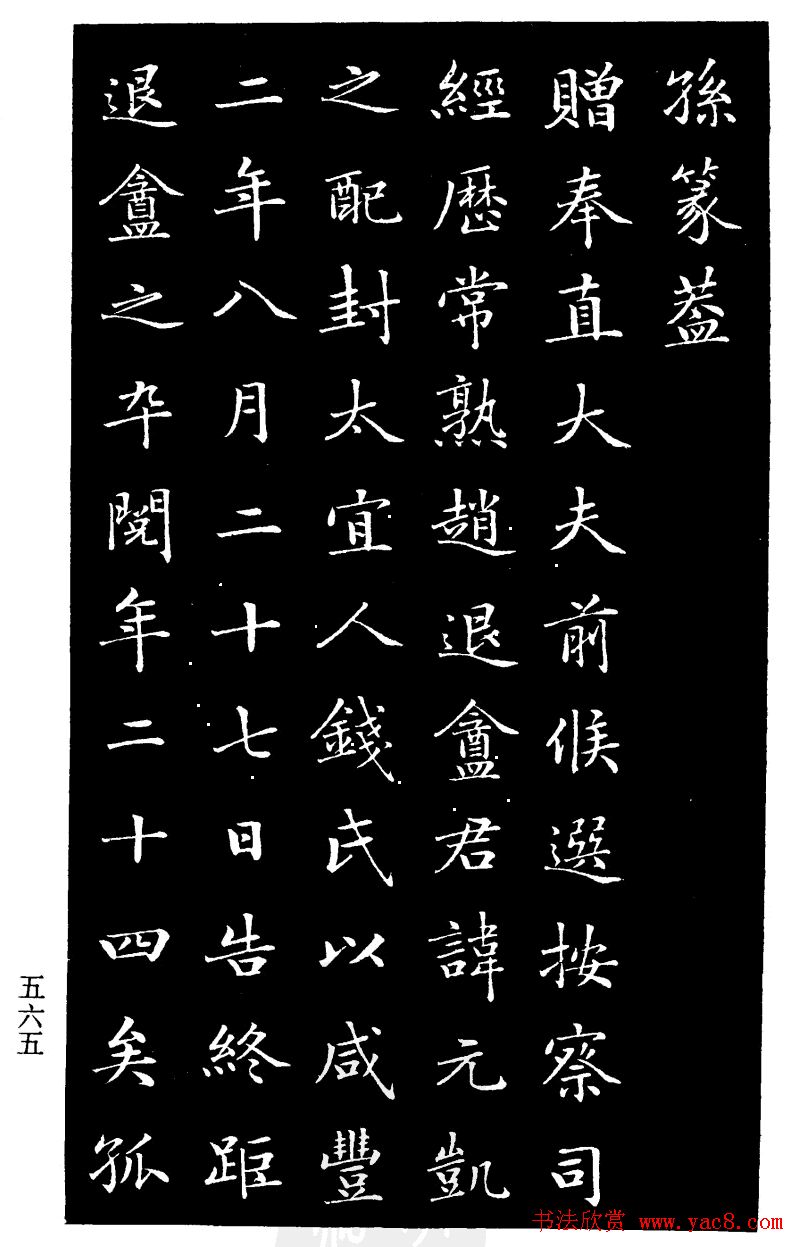 孫篆蓋
贈奉直大夫前候選按察司
經歷常熟趙退盦君諱元凱
之配封太宜人錢氏以咸豐
二年八月二十七日告終距
退盦之卒閱年二十四矣孤
五六五
书法欣赏 www.yac8.com